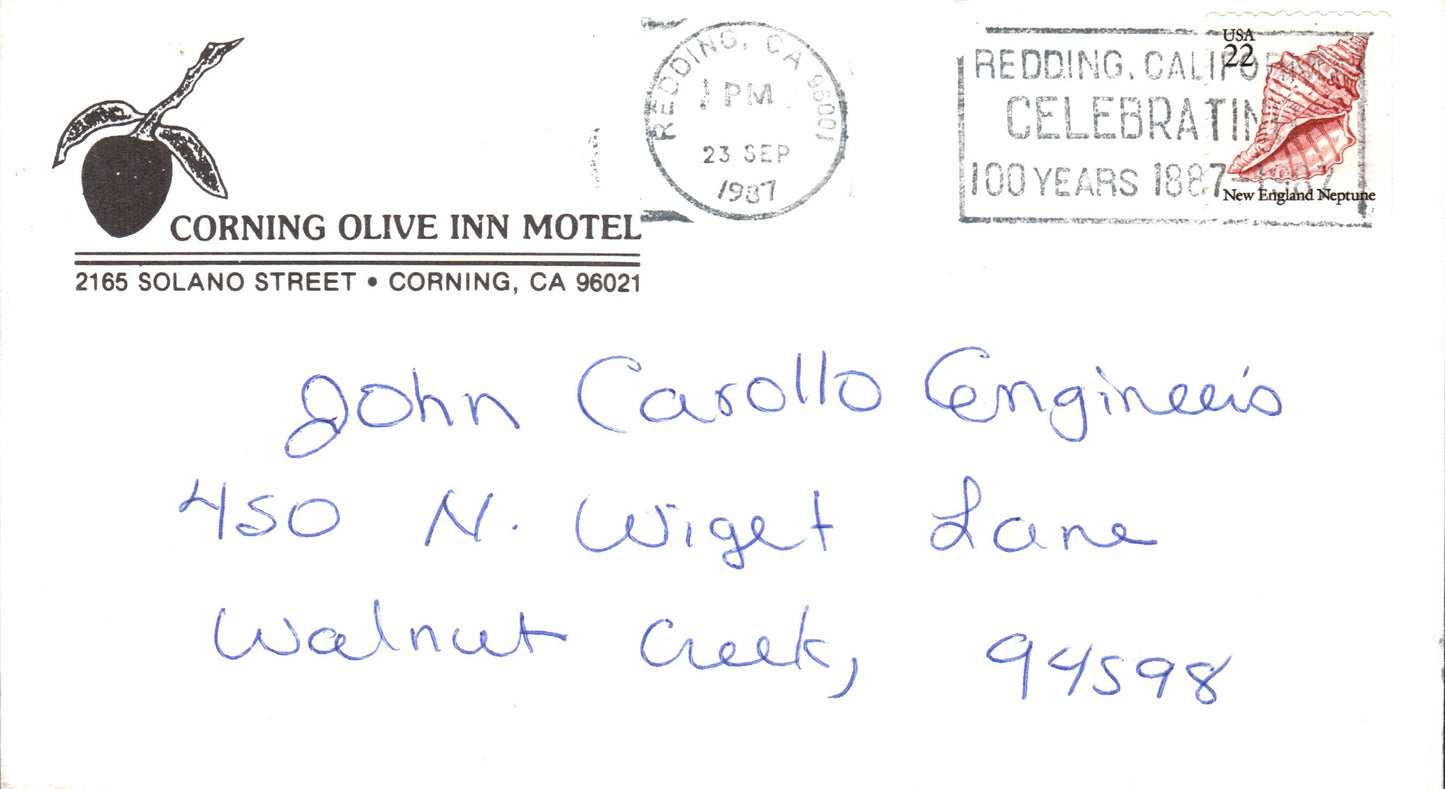 CORNING OLIVE INN MOTEL
2165 SOLANO STREET • CORNING, CA 96021
REDDING, CA 96001
PM
23 SEP
1987
REDDING, CALIFORNIA
CELEBRATING
100 YEARS 1887-1987
USA
22
New England Neptune
John Carollo Engineers
450 N. Wiget Lane
Walnut Creek, 94598